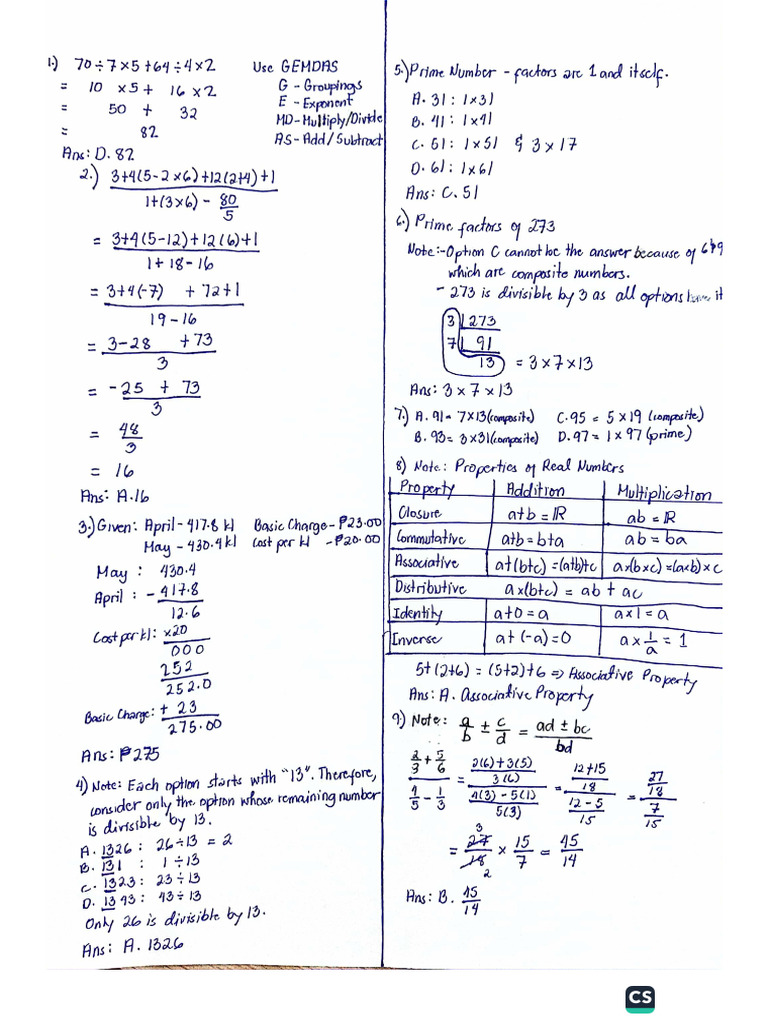 1.) 70÷7×5+64÷4×2 Use GEMDAS
= 10 ×5+ 16 ×2 G - Groupings
= 50 + 32 E - Exponent
= 82 MD-Multiply/Divide
Ans: D. 82 AS-Add/Subtract
2.) 3+4(5-2×6)+12(2+4)+1
1+(3×6) - 80/5
= 3+4(5-12)+12(6)+1
1+18-16
= 3+4(-7) + 72+1
19-16
= 3-28 +73
3
= -25 + 73
3
= 48
3
= 16
Ans: A.16
3.) Given: April-417.8 kl Basic Charge-₱23.00
May - 430.4 kl Cost per kl -₱20.00
May : 430.4
April : - 417.8
12.6
Cost per kl: ×20
000
252
252.0
Basic Charge: + 23
275.00
Ans: ₱275
4) Note: Each option starts with "13". Therefore,
consider only the option whose remaining number
is divisible by 13.
A. 1326 : 26÷13 = 2
B. 131 : 1÷13
C. 1323 : 23÷13
D. 1343 : 43÷13
Only 26 is divisible by 13.
Ans: A. 1326
5.) Prime Number - factors are 1 and itself.
A. 31 : 1×31
B. 41 : 1×41
C. 51 : 1×51 & 3×17
D. 61 : 1×61
Ans: C. 51
6.) Prime factors of 273
Note:-Option C cannot be the answer because of 6&9
which are composite numbers.
- 273 is divisible by 3 as all options have it
3 273
7 91
13 = 3×7×13
Ans: 3×7×13
7.) A. 91= 7×13(composite) C.95 = 5×19 (composite)
B. 93= 3×31(composite) D.97= 1×97(prime)
8) Note: Properties of Real Numbers
Property Addition Multiplication
Closure a+b=ℝ ab=ℝ
Commutative a+b=b+a ab=ba
Associative a+(b+c)=(a+b)+c a×(b×c)=(a×b)×c
Distributive a×(b+c) = ab + ac
Identity a+0=a a×1=a
Inverse a+(-a)=0 a×1/a=1
5+(2+6) = (5+2)+6 => Associative Property
Ans: A. Associative Property
9) Note: a/b ± c/d = ad±bc/bd
2/3 + 5/6 = 2(6)+3(5)/3(6) = 12+15/18 = 27/18
4/5 - 1/3 4(3)-5(1)/5(3) 12-5/15 7/15
= 3 27/18 2 × 15/7 = 45/14
Ans: B. 45/14
CS